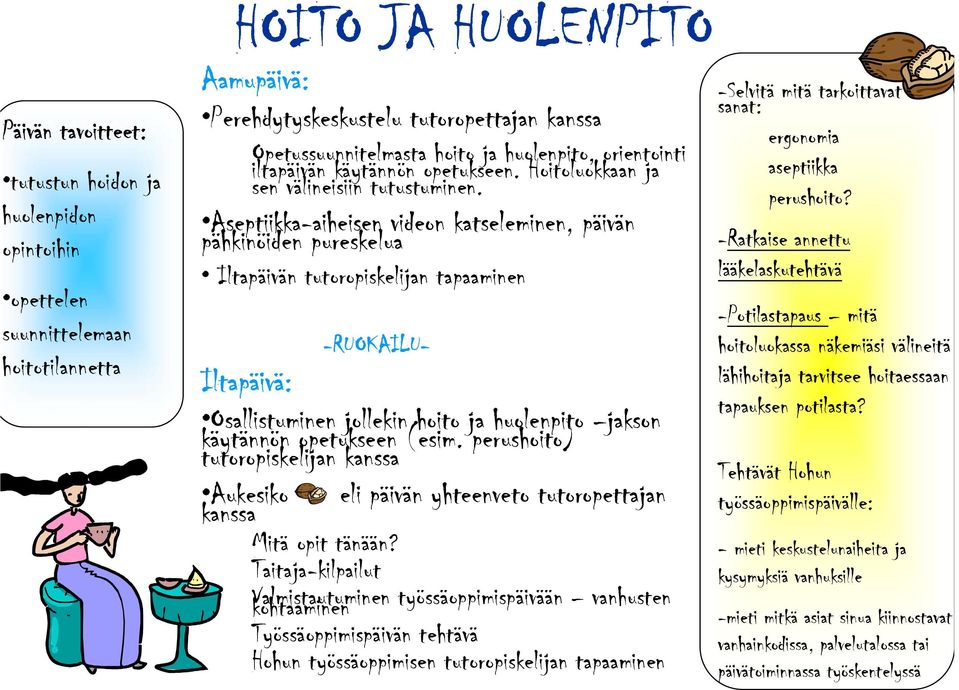 HOITO JA HUOLENPITO
Päivän tavoitteet:
•tutustun hoidon ja
huolenpidon
opintoihin
•opettelen
suunnittelemaan
hoitotilannetta
Aamupäivä:
•Perehdytyskeskustelu tutoropettajan kanssa
Opetussuunnitelmasta hoito ja huolenpito, orientointi
iltapäivän käytännön opetukseen. Hoitoluokkaan ja
sen välineisiin tutustuminen.
•Aseptiikka-aiheisen videon katseleminen, päivän
pähkinöiden pureskelua
• Iltapäivän tutoropiskelijan tapaaminen
-RUOKAILU-
Iltapäivä:
•Osallistuminen jollekin hoito ja huolenpito –jakson
käytännön opetukseen (esim. perushoito)
tutoropiskelijan kanssa
•Aukesiko eli päivän yhteenveto tutoropettajan
kanssa
Mitä opit tänään?
Taitaja-kilpailut
Valmistautuminen työssäoppimispäivään – vanhusten
kohtaaminen
Työssäoppimispäivän tehtävä
Hohun työssäoppimisen tutoropiskelijan tapaaminen
-Selvitä mitä tarkoittavat
sanat:
ergonomia
aseptiikka
perushoito?
-Ratkaise annettu
lääkelaskutehtävä
-Potilastapaus – mitä
hoitoluokassa näkemiäsi välineitä
lähihoitaja tarvitsee hoitaessaan
tapauksen potilasta?
Tehtävät Hohun
työssäoppimispäivälle:
- mieti keskustelunaiheita ja
kysymyksiä vanhuksille
-mieti mitkä asiat sinua kiinnostavat
vanhainkodissa, palvelutalossa tai
päivätoiminnassa työskentelyssä